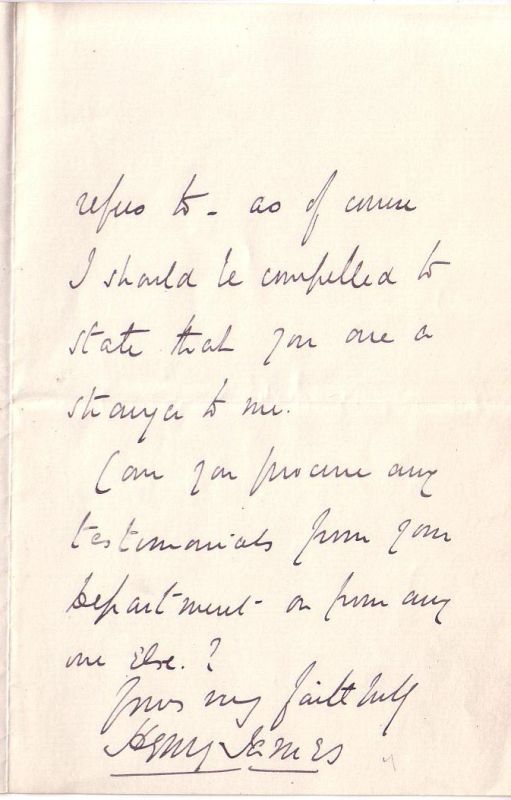 refers to - as of course
I should be compelled to
state that you are a
stranger to me.
Can you procure any
testimonials from your
Department - or from any
one else. ?
Yours very faithfully
Henry James